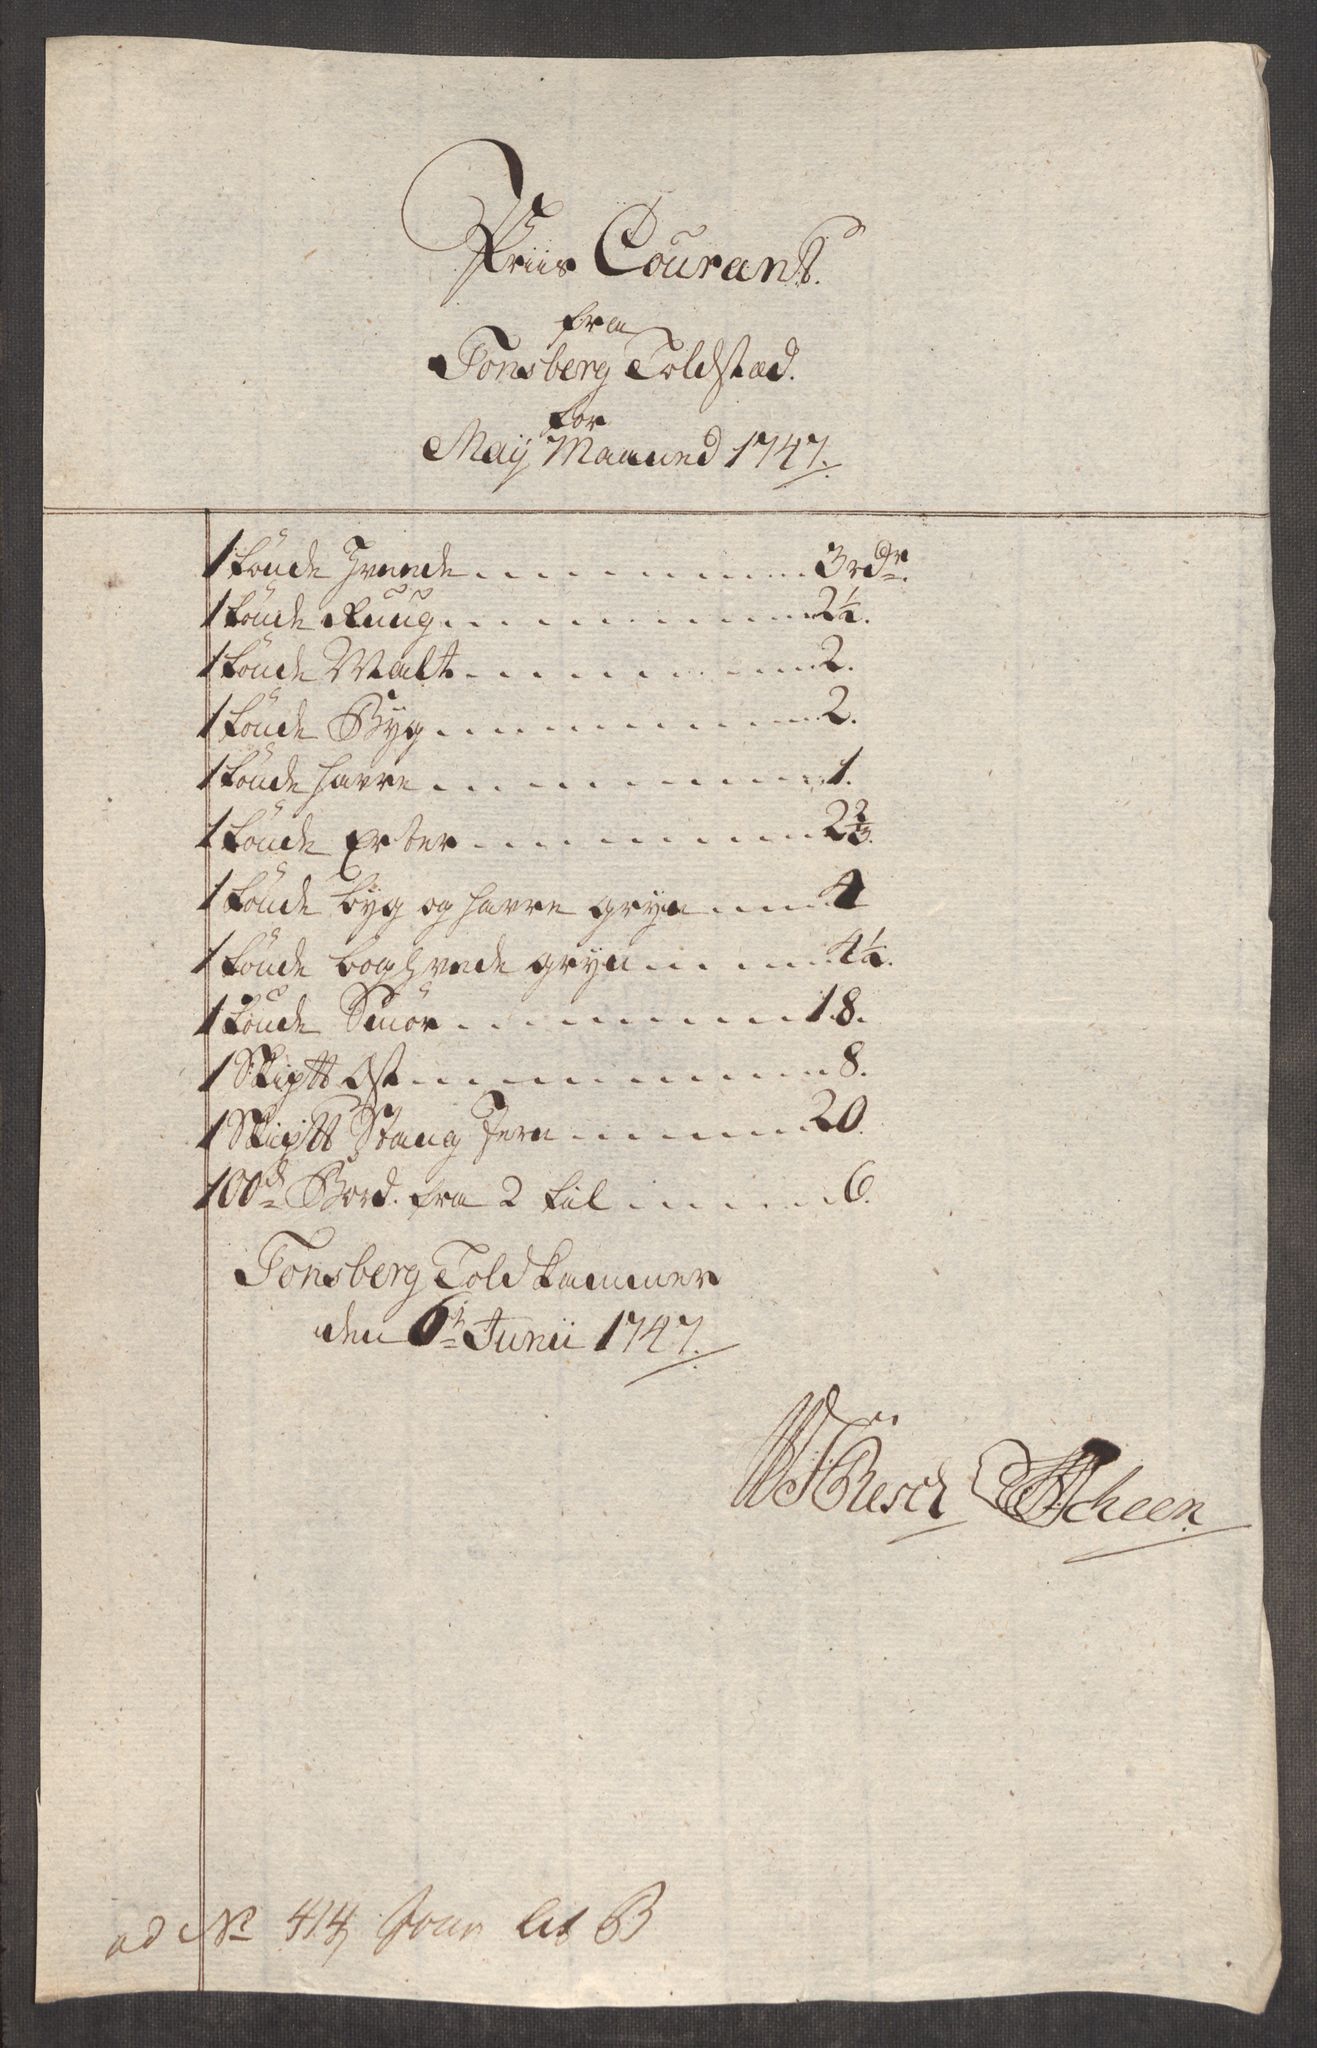 Priis Courant.
fra
Tonsberg Toldstæd.
for
Maÿ Maaned 1747.
1 tönde Hveede 3 rdr.
1 tönde Ruug 2½.
1 tönde Malt 2.
1 tönde Byg 2.
1 tönde havre 1.
1 tönde Erter 2⅔.
1 tönde byg og havre gryn 4
1 tönde boghvede gryn 4½.
1 tönde Smör 18.
1 Skip℔ Ost 8.
1 Skip℔ Stang Jern 20.
100d Bord. fra 2 til 6.
Tonsberg Told kammer
den 6te Junii 1747.
Resch Scheen
ad No 414 Jour Lit B